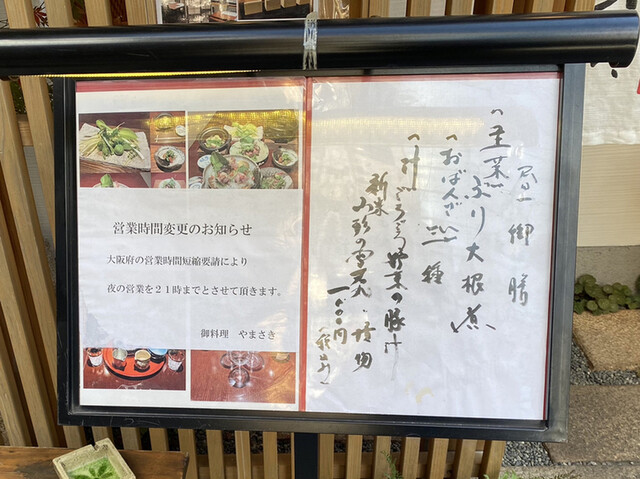 営業時間変更のお知らせ
大阪府の営業時間短縮要請により
夜の営業を21時までとさせて頂きます。
御料理 やまさき
昼御膳
主菜 ぶり大根煮
おばんざい三種
汁 ごろごろ野菜の豚汁
新米 山形の雪若丸 漬物